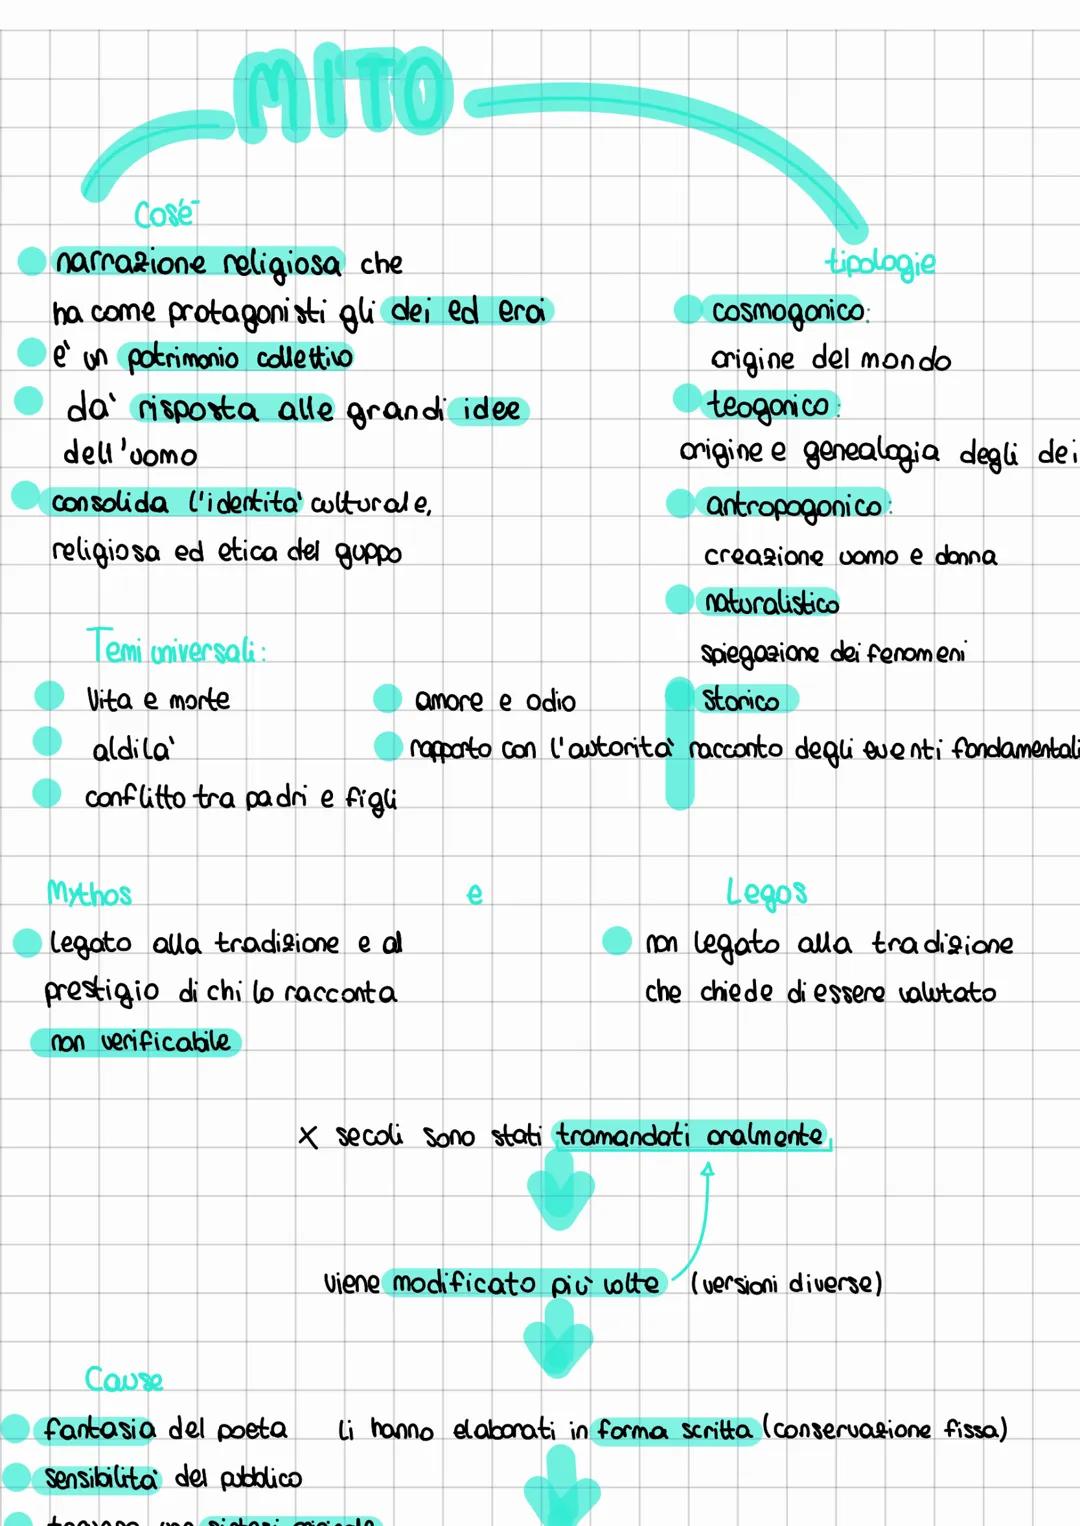 MITO
Cos'é
narrazione religiosa che
ha come protagonisti gli dei ed eroi
e' un patrimonio collettivo
da' risposta alle grandi idee
dell'uomo
consolida l'identita' culturale,
religiosa ed etica del guppo
tipologie
cosmogonico:
origine del mondo
teogonico:
origine e genealogia degli dei
antropogonico:
creazione uomo e donna
naturalistico
spiegazione dei fenomeni
storico
racconto degli eventi fondamentali
Temi universali:
Vita e morte
aldila'
conflitto tra padri e figli
amore e odio
rapporto con l'autorita'
Mythos e Legos
legato alla tradizione e al
prestigio di chi lo racconta
non verificabile
non legato alla tradizione
che chiede di essere valutato
X secoli sono stati tramandati oralmente
viene modificato piu' volte (versioni diverse)
Cause
fantasia del poeta
sensibilita' del pubblico
li hanno elaborati in forma scritta (conservazione fissa)